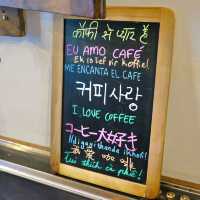 कॉफी से प्यार है
EU AMO CAFÉ
Ek is lief vir koffie!
ME ENCANTA EL CAFE
커피사랑
I LOVE COFFEE
コーヒー大好き
Ndiyayithanda ikhofi!
我爱咖啡
Tôi thích cà phê!